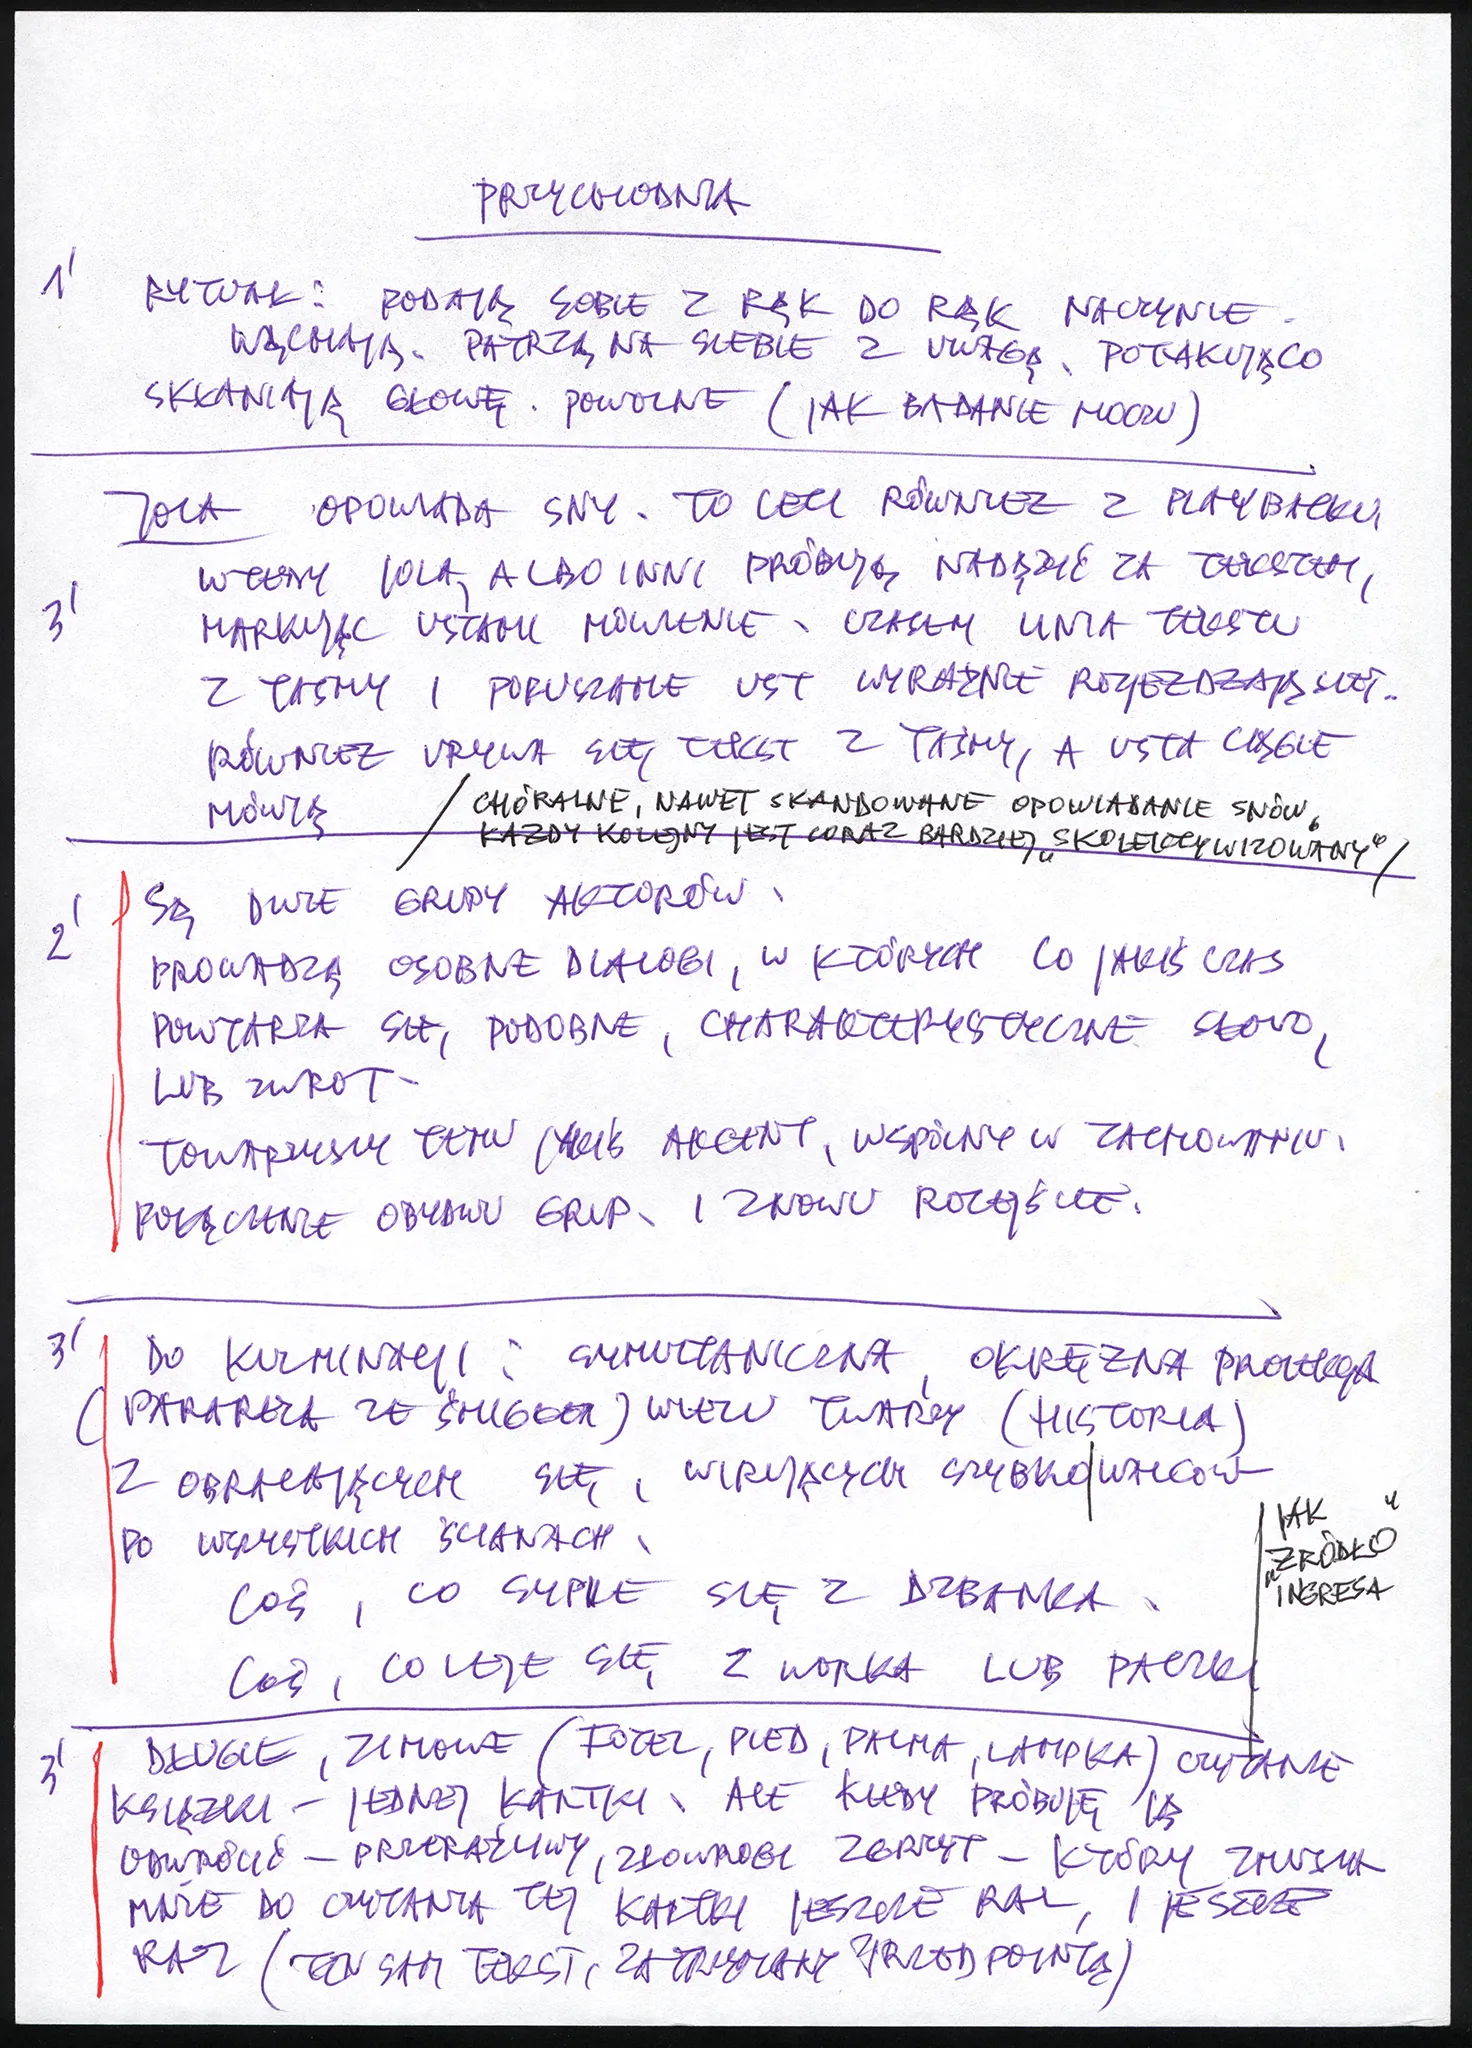 PRZYCHODNIA
1'
RYTUAŁ: PODAJĄ SOBIE Z RĄK DO RĄK NACZYNIE.
WĄCHAJĄ. PATRZĄ NA SIEBIE Z UWAGĄ. POTAKUJĄCO
SKŁANIAJĄ GŁOWĘ. POWOLNE (JAK BADANIE MOCZU)
JOLA OPOWIADA SNY. TO LECI RÓWNIEŻ Z PLAYBACKU
WTEDY JOLA, ALBO INNI PRÓBUJĄ NADĄŻYĆ ZA TEKSTEM,
3'
MARKUJĄC USTAMI MÓWIENIE. CZASEM LINIA TEKSTU
Z TAŚMY I PORUSZANIE UST WYRAŹNIE ROZJEŻDŻAJĄ SIĘ.
RÓWNIEŻ URYWA SIĘ TEKST Z TAŚMY, A USTA CIĄGLE
MÓWIĄ
/ CHÓRALNE, NAWET SKANDOWANE OPOWIADANIE SNÓW,
KAŻDY KOLEJNY JEST CORAZ BARDZIEJ „SKOLEKTYWIZOWANY” /
2'
SĄ DWIE GRUPY AKTORÓW.
PROWADZĄ OSOBNE DIALOGI, W KTÓRYCH CO JAKIŚ CZAS
POWTARZA SIĘ, PODOBNE, CHARAKTERYSTYCZNE SŁOWO,
LUB ZWROT.
TOWARZYSZY TEMU JAKIŚ AKCENT, WSPÓLNY W ZACHOWANIU.
POŁĄCZENIE OBYDWU GRUP. I ZNOWU ROZEJŚCIE.
3'
DO KULMINACJI: SYMULTANICZNA, OKRĘŻNA PROJEKCJA
(PARAFRAZA ZE) WIELU TWARZY (HISTORIA)
Z OBRACAJĄCYCH SIĘ, WIRUJĄCYCH SZYBKO WALCÓW
PO WSZYSTKICH ŚCIANACH.
COŚ, CO SYPIE SIĘ Z DZBANKA.
COŚ, CO LEJE SIĘ Z WORKA LUB PACZKI
JAK
„ŹRÓDŁO”
INGRESA
3'
DŁUGIE, ZIMOWE (FOTEL, PLED, PALMA, LAMPKA) CZYTANIE
KSIĄŻKI – JEDNEJ KARTKI. ALE KIEDY PRÓBUJĘ JĄ
ODWRÓCIĆ – PRZERAŹLIWY, ZŁOWROGI ZGRZYT – KTÓRY ZMUSZA
MNIE DO CZYTANIA TEJ KARTKI JESZCZE RAZ, I JESZCZE
RAZ (TEN SAM TEKST, ZATRZYMANY PRZED POINTĄ)